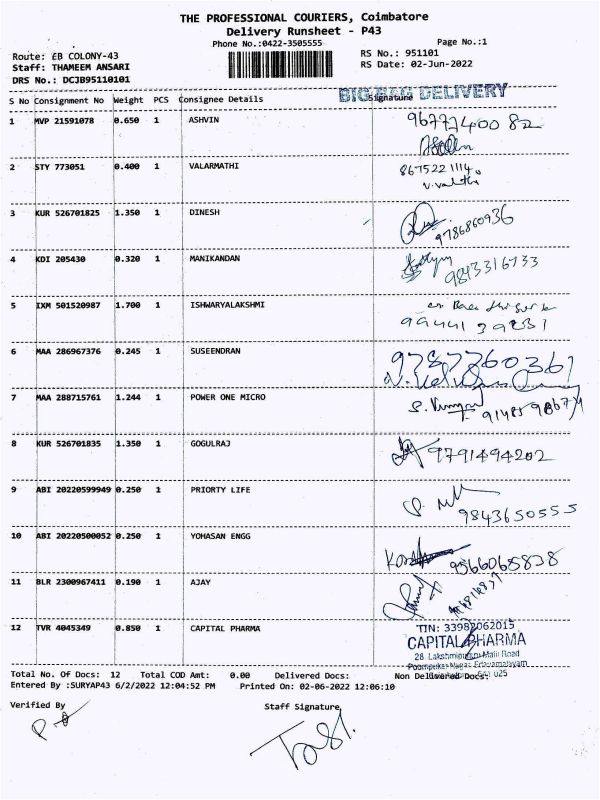 THE PROFESSIONAL COURIERS, Coimbatore
Delivery Runsheet - P43
Phone No.:0422-3505555
Page No.:1
Route: EB COLONY-43
RS No.: 951101
Staff: THAMEEM ANSARI
RS Date: 02-Jun-2022
DRS No.: DCJB95110101
BIG BAG DELIVERY
S No Consignment No Weight PCS Consignee Details Signature
1 MVP 21591078 0.650 1 ASHVIN
2 STY 773051 0.400 1 VALARMATHI 8675221114
3 KUR 526701825 1.350 1 DINESH 9786860936
4 KDI 205430 0.320 1 MANIKANDAN 9843316733
5 IXM 501520987 1.700 1 ISHWARYALAKSHMI
6 MAA 286967376 0.245 1 SUSEENDRAN 9787760361
7 MAA 288715761 1.244 1 POWER ONE MICRO
8 KUR 526701835 1.350 1 GOGULRAJ 9791494202
9 ABI 20220599949 0.250 1 PRIORTY LIFE 9843650555
10 ABI 20220500052 0.250 1 YOHASAN ENGG 9566065838
11 BLR 2300967411 0.190 1 AJAY
12 TVR 4045349 0.850 1 CAPITAL PHARMA
TIN: 33982062015
CAPITAL PHARMA
28, Lakshmipuram Main Road
Total No. Of Docs: 12 Total COD Amt: 0.00 Delivered Docs: Non Delivered Docs:
Entered By :SURYAP43 6/2/2022 12:04:52 PM Printed On: 02-06-2022 12:06:10
Verified By
Staff Signature